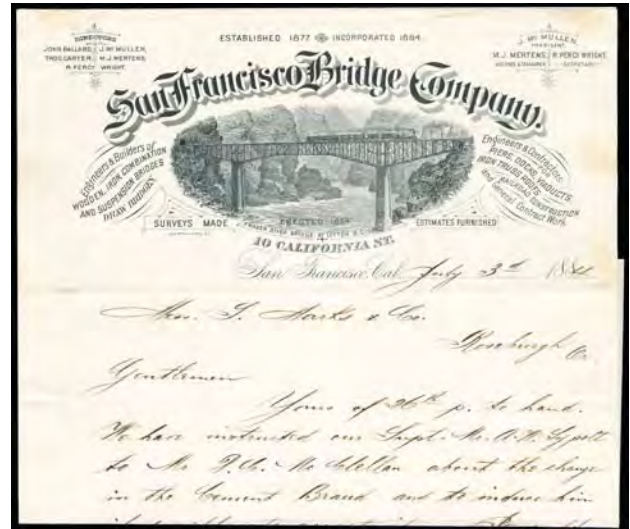 DIRECTORS
JOHN BALLARD, J. Mc MULLEN,
THOS. CARTER, M. J. MERTENS,
H. PERCY WRIGHT.
ESTABLISHED 1877 INCORPORATED 1884
J. Mc MULLEN,
PRESIDENT.
M. J. MERTENS, H. PERCY WRIGHT.
SECRETARY
San Francisco Bridge Company.
Engineers & Builders of
WOODEN, IRON, COMBINATION
AND SUSPENSION BRIDGES
DRAW BRIDGES
Engineers & Contractors
PIERS, DOCKS, VIADUCTS
IRON TRUSS ROOFS
RAILROAD CONSTRUCTION
and General Contract Work.
SURVEYS MADE
ERECTED 1884
FRASER RIVER BRIDGE AT LYTTON B.C.
ESTIMATES FURNISHED
10 CALIFORNIA ST.
San Francisco, Cal. July 3d 1884
Mess. S. Marks & Co.
Roseburgh Or.
Gentlemen
Yours of 26th p. to hand.
We have instructed our Supt. Mr. A. H.
to Mr. McClellan about the change
in the Cement Brand and to induce him